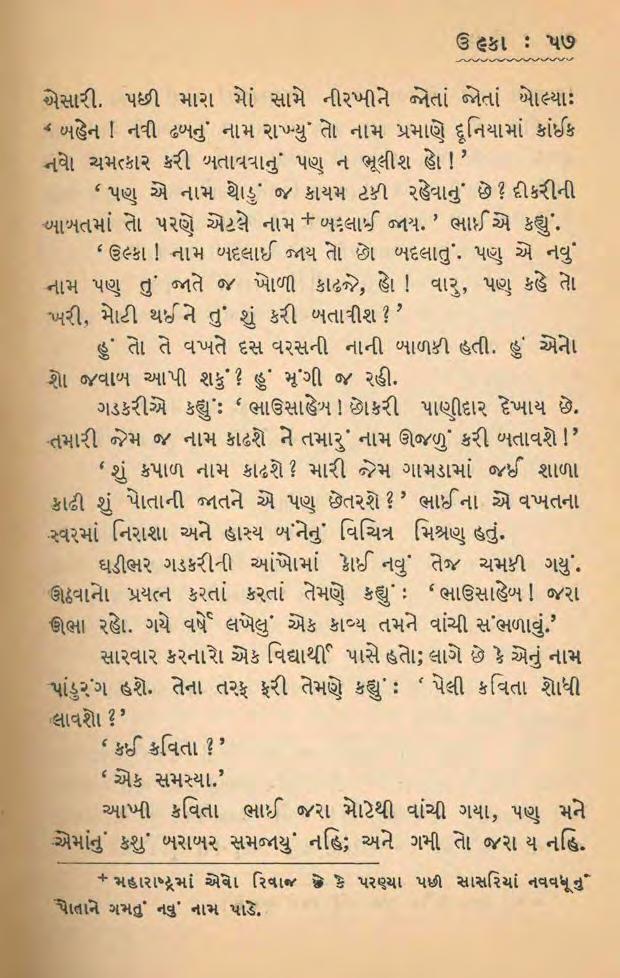 ઉલ્કા : ૫૭
બેસારી. પછી મારા માેં સામે નીરખીને જોતાં જોતાં બોલ્યાઃ
‘ બહેન ! નવી ઢબનું નામ રાખ્યું તો નામ પ્રમાણે દૂનિયામાં કાંઈક
નવો ચમત્કાર કરી બતાવવાનું પણ ન ભૂલીશ હો ! ’
‘ પણ એ નામ થોડું જ કાયમ ટકી રહેવાનું છે ? દીકરીની
બાબતમાં તો પરણે એટલે નામ + બદલાઈ જાય. ’ ભાઈએ કહ્યું.
‘ ઉલ્કા ! નામ બદલાઈ જાય તો છો બદલાતું. પણ એ નવું
નામ પણ તું જાતે જ ખોળી કાઢજે, હો ! વારુ, પણ કહે તો
ખરી, મોટી થઈને તું શું કરી બતાવીશ ? ’
હું તો તે વખતે દસ વરસની નાની બાળકી હતી. હું એનો
શો જવાબ આપી શકું ? હું મૂંગી જ રહી.
ગડકરીએ કહ્યું: ‘ ભાઉસાહેબ ! છોકરી પાણીદાર દેખાય છે.
તમારી જેમ જ નામ કાઢશે ને તમારું નામ ઊજળું કરી બતાવશે ! ’
‘ શું કપાળ નામ કાઢશે ? મારી જેમ ગામડામાં જઈ શાળા
કાઢી શું પોતાની જાતને એ પણ છેતરશે ? ’ ભાઈના એ વખતના
સ્વરમાં નિરાશા અને હાસ્ય બંનેનું વિચિત્ર મિશ્રણ હતું.
ઘડીભર ગડકરીની આંખોમાં કોઈ નવું તેજ ચમકી ગયું.
ઊઠવાનો પ્રયત્ન કરતાં કરતાં તેમણે કહ્યું : ‘ ભાઉસાહેબ ! જરા
ઊભા રહો. ગયે વર્ષે લખેલું એક કાવ્ય તમને વાંચી સંભળાવું.’
સારવાર કરનારો એક વિદ્યાર્થી પાસે હતો; લાગે છે કે એનું નામ
પાંડુરંગ હશે. તેના તરફ ફરી તેમણે કહ્યું : ‘ પેલી કવિતા શોધી
લાવશો ? ’
‘ કઈ કવિતા ? ’
‘ એક સમસ્યા.’
આખી કવિતા ભાઈ જરા મોટેથી વાંચી ગયા, પણ મને
એમાંનું કશું બરાબર સમજાયું નહિ; અને ગમી તો જરા ય નહિ.
+ મહારાષ્ટ્રમાં એવો રિવાજ છે કે પરણ્યા પછી સાસરિયાં નવવધૂનું
પોતાને ગમતું નવું નામ પાડે.